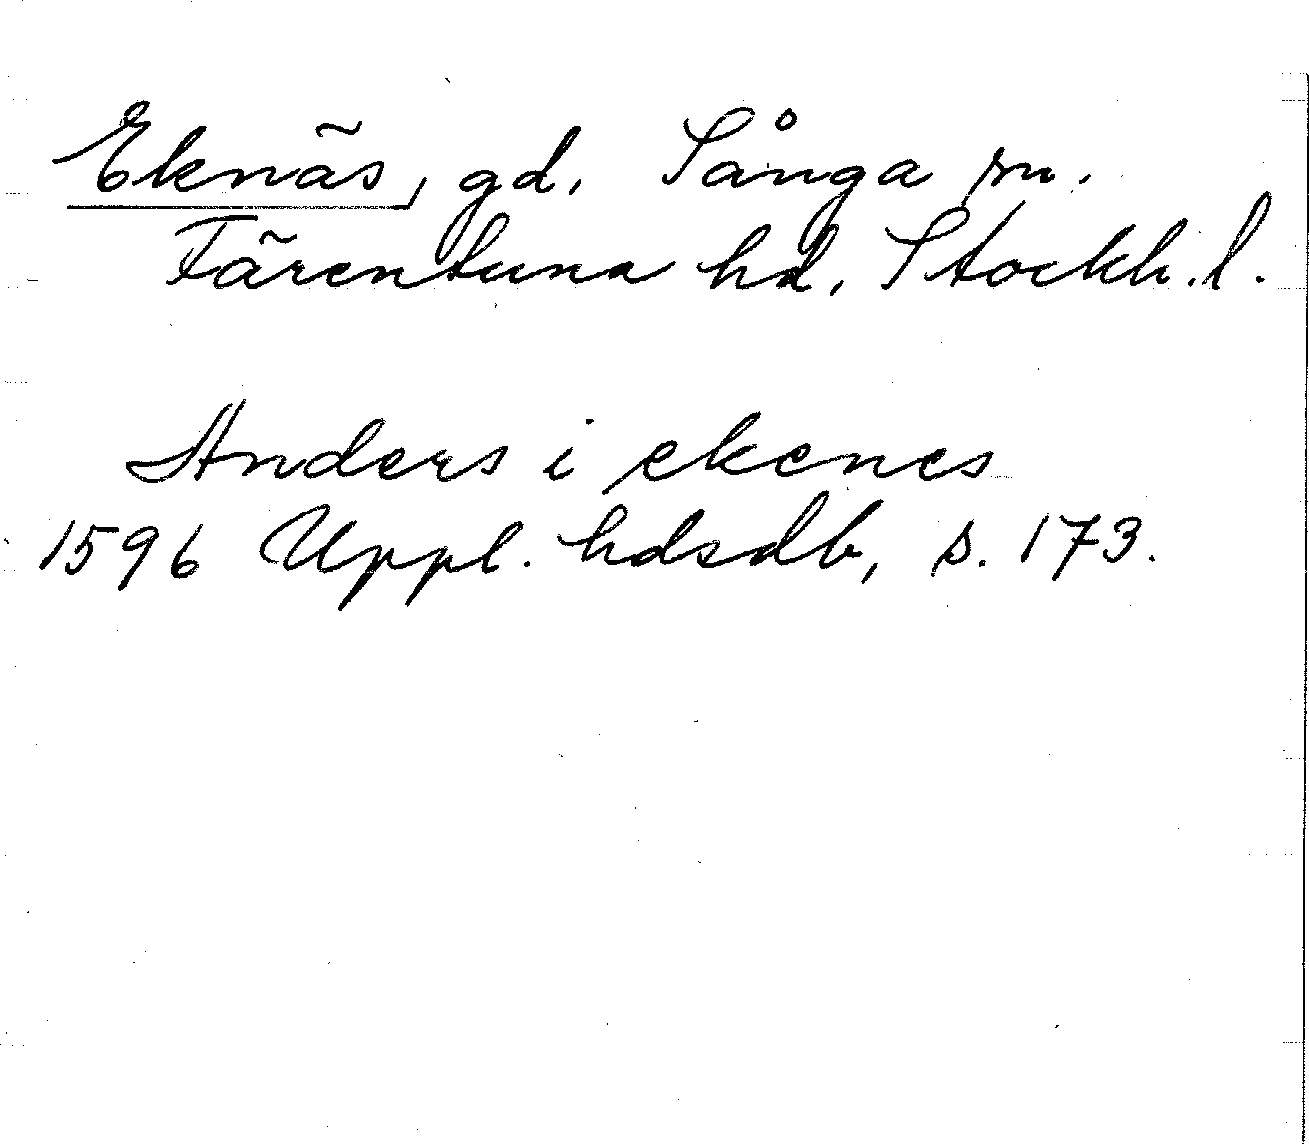 Eknäs, gd, Sånga sn.
Färentuna hd, Stockh. l.
Anders i ekenes
1596 Uppl. hdsdb, s. 173.